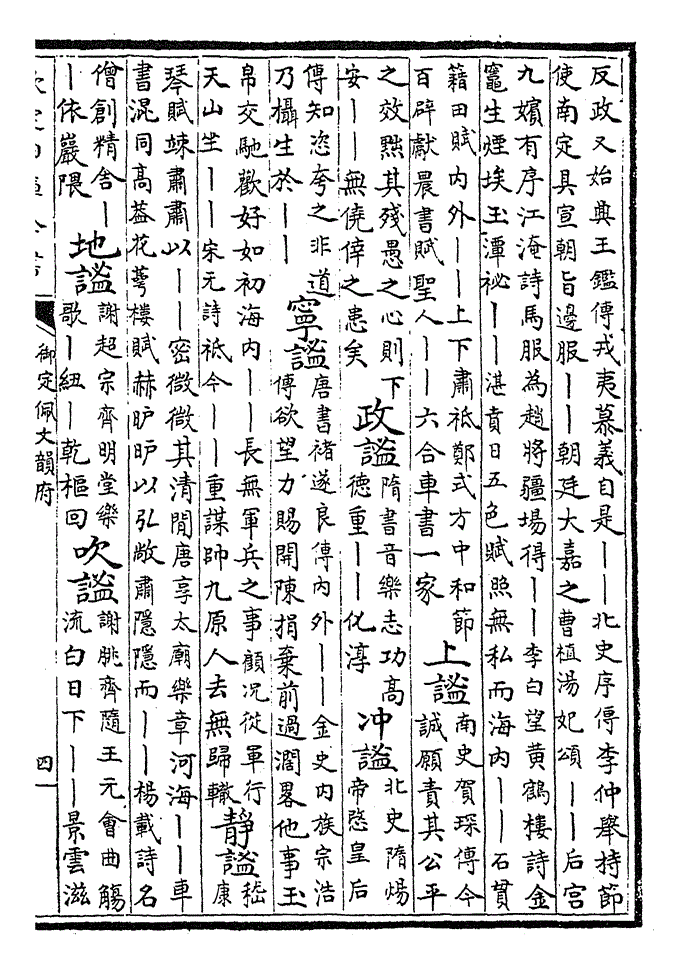 反政又始興王鑑傳戎夷慕義自是——北史序傳李仲舉持節
使南定具宣朝旨邊服——朝廷大嘉之曹植湯妃頌——后宫
九嬪有序江淹詩馬服為趙將疆場得——李白望黄鶴樓詩金
竈生煙埃玉潭祕——湛賁日五色賦照無私而海内——石貫
籍田賦内外——上下肅祗鄭式方中和節
百辟獻晨書賦聖人——六合車書一家
上謐
南史賀琛傳今
誠願責其公平
之效黜其殘愚之心則下
安——無僥倖之患矣
政謐
隋書音樂志功高
德重——化淳
冲謐
北史隋煬
帝愍皇后
傳知恣夸之非道
乃攝生於——
寧謐
唐書褚遂良傳内外——金史内族宗浩
傳欲望力賜開陳捐棄前過濶畧他事玉
帛交馳歡好如初海内——長無軍兵之事顧况從軍行
天山㘴——宋元詩祗今——重謀帥九原人去無歸轍
靜謐
嵇
康
琴賦竦肅肅以——密微微其清閒唐享太廟樂章河海——車
書混同高蓋花萼樓賦赫昈昈以弘敞肅隱隱而——楊載詩名
僧創精舍—
—依巖隈
地謐
謝超宗齊明堂樂
歌—紐—乾樞回
吹謐
謝朓齊隨王元會曲觴
流白日下——景雲滋
御定佩文韻府
四